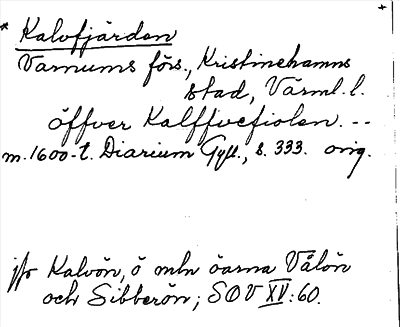 * Kalvfjärden +
Varnums förs., Kristinehamns
stad, Värml. l.
öffver Kalffuefiolen. --
m. 1600-t. Diarium Gyll., s. 333. orig.
jfr Kalvön, ö mln öarna Vålön
och Sibberön; SOV XV: 60.